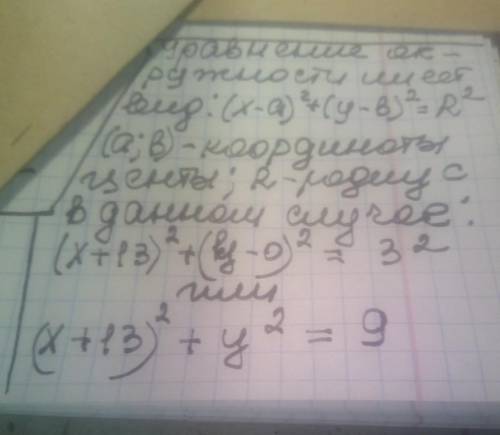 Уравнение ок-
ружности имеет
вид: (x-a)²+(y-в)²=R²
(a;в)-координаты
центы; R-родиус
В данном случае:
(x+13)²+(y-0)² = 3²
или
(x+13)² + y² = 9